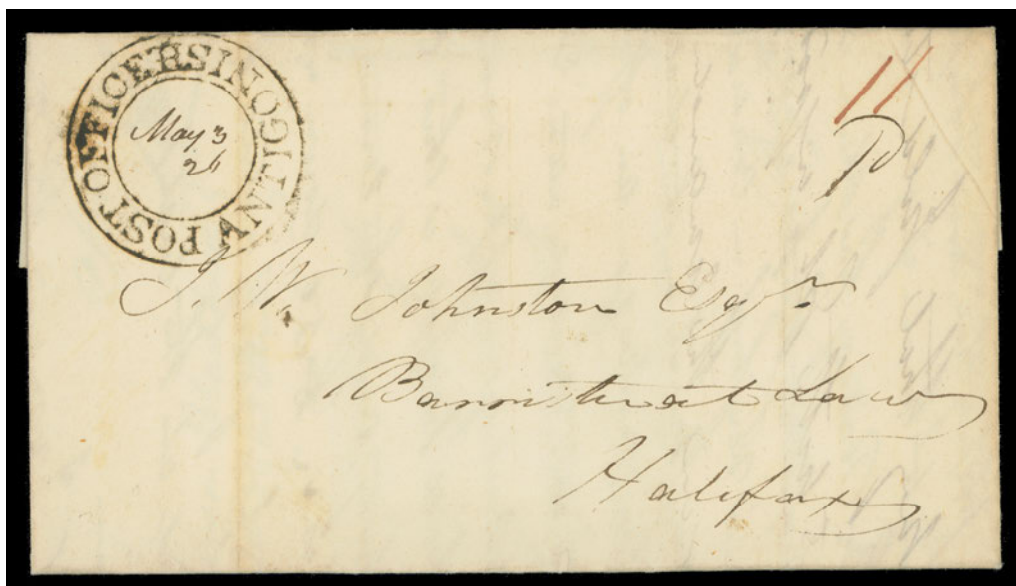 POST·OFFICERSINOGITNA
May 3
26
11
Pd
J. W. Johnston Esqr
Barrister at Law
Halifax